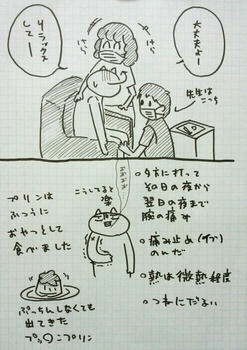 大丈夫よー
リラックス
してー
けら
けら
先生は
こっち
こうしてると
楽
プリンは
ふつうに
おやつとして
食べました
ぷっちんしなくても
出てきた
プッ〇ンプリン
○夕方に打って
その日の夜から
翌日の夜まで
腕の痛す
○痛み止め
のんだ
○熱は微熱程度
○つねにだるい